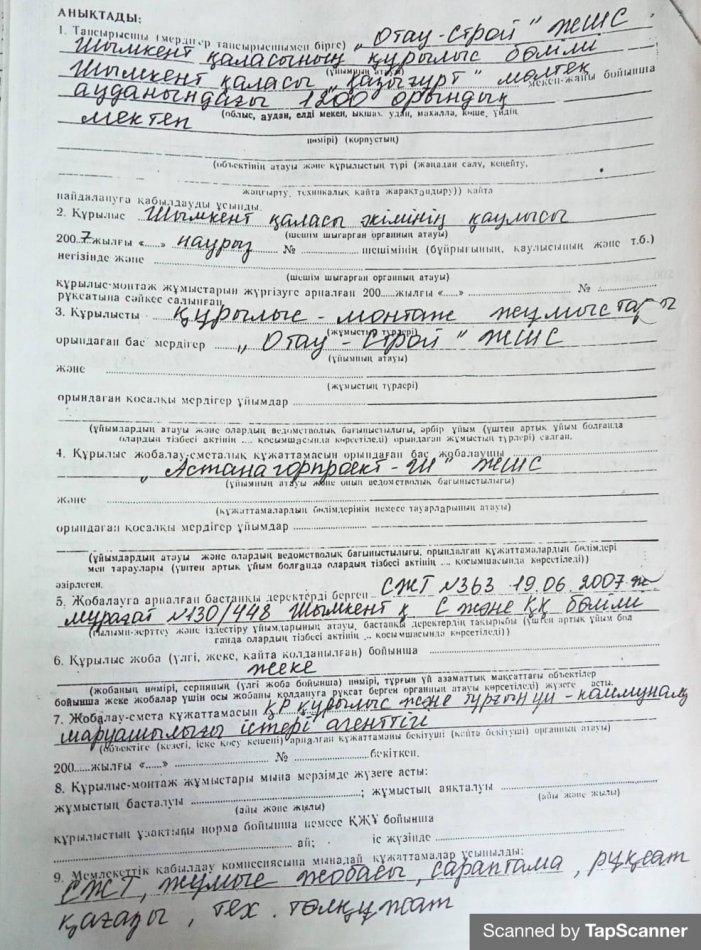 АНЫҚТАДЫ:
1. Тапсырысшы (мердігер тапсырысшымен бірге) „Отау-Строй" ЖШС
Шымкент қаласының құрылыс бөлімі
(ұйымның атауы)
Шымкент қаласы „Қазығұрт" мөлтек мекен-жайы бойынша
ауданындағы 1200 орындық
мектеп (облыс, аудан, елді мекен, ықшам аудан, махалла, көше, үйдің
нөмірі) (корпустың)
(объектінің атауы және құрылыстың түрі (жаңадан салу, кеңейту,
жаңғырту, техникалық қайта жарақтандыру)) қайта
пайдалануға қабылдауды ұсынды.
2. Құрылыс Шымкент қаласы әкімінің қаулысы
(шешім шығарған органның атауы)
2007 жылғы «......» наурыз № ........ шешімінің (бұйрығының, қаулысының және т.б.)
негізінде және
(шешім шығарған органның атауы)
құрылыс-монтаж жұмыстарын жүргізуге арналған 200.....жылғы «.....» .......... № ..........
рұқсатына сәйкес салынған.
3. Құрылысты құрылыс-монтаж жұмыстары
(жұмыстың түрлері)
орындаған бас мердігер „Отау-Строй" ЖШС
(ұйымның атауы)
және
(жұмыстың түрлері)
орындаған қосалқы мердігер ұйымдар
(ұйымдардың атауы және олардың ведомстволық бағыныстылығы, әрбір ұйым (үштен артық ұйым болғанда
олардың тізбесі актінің .... қосымшасында көрсетіледі) орындаған жұмыстың түрлері) салған.
4. Құрылыс жобалау-сметалық құжаттамасын орындаған бас жобалаушы
„Астанагорпроект-Ш" ЖШС
(ұйымның атауы және оның ведомстволық бағыныстылығы)
және
(құжаттамалардың бөлімдерінің немесе тауарларының атауы)
орындаған қосалқы мердігер ұйымдар
(ұйымдардың атауы және олардың ведомстволық бағыныстылығы, орындалған құжаттамалардың бөлімдері
мен тараулары (үштен артық ұйым болғанда олардың тізбесі актінің ... қосымшасында көрсетіледі))
әзірлеген.
5. Жобалауға арналған бастапқы деректерді берген СЖТ №363 19.06.2007 ж
мұрағат №130/448 Шымкент қ С және ҚҚ бөлімі
(ғылыми-зерттеу және іздестіру ұйымдарының атауы, бастапқы деректердің тақырыбы (үштен артық ұйым бол
ғанда олардың тізбесі актінің ... қосымшасында көрсетіледі))
6. Құрылыс жоба (үлгі, жеке, қайта қолданылған) бойынша
жеке
(жобаның нөмірі, серияның (үлгі жоба бойынша) нөмірі, тұрғын үй азаматтық мақсаттағы объектілер
бойынша жеке жобалар үшін осы жобаны қолдануға рұқсат берген органның атауы көрсетіледі) жүзеге асты.
7. Жобалау-смета құжаттамасын ҚР құрылыс және тұрғын үй-коммуналд
шаруашылығы істері агенттігі
(объектіге (кезегі, іске қосу кешені) арналған құжаттаманы бекітуші (қайта бекітуші) органның атауы)
200.....жылғы «.....» .......... № .......... бекіткен.
8. Құрылыс-монтаж жұмыстары мына мерзімде жүзеге асты:
жұмыстың басталуы ..........; жұмыстың аяқталуы ..........
(айы және жылы) (айы және жылы)
құрылыстың ұзақтығы норма бойынша немесе ҚЖҰ бойынша
.......... ай; іс жүзінде ..........
9. Мемлекеттік қабылдау комиссиясына мынадай құжаттамалар ұсынылды:
СЖТ, жұмыс жобасы, сараптама, рұқсат
қағазы, тех. төлқұжат
Scanned by TapScanner